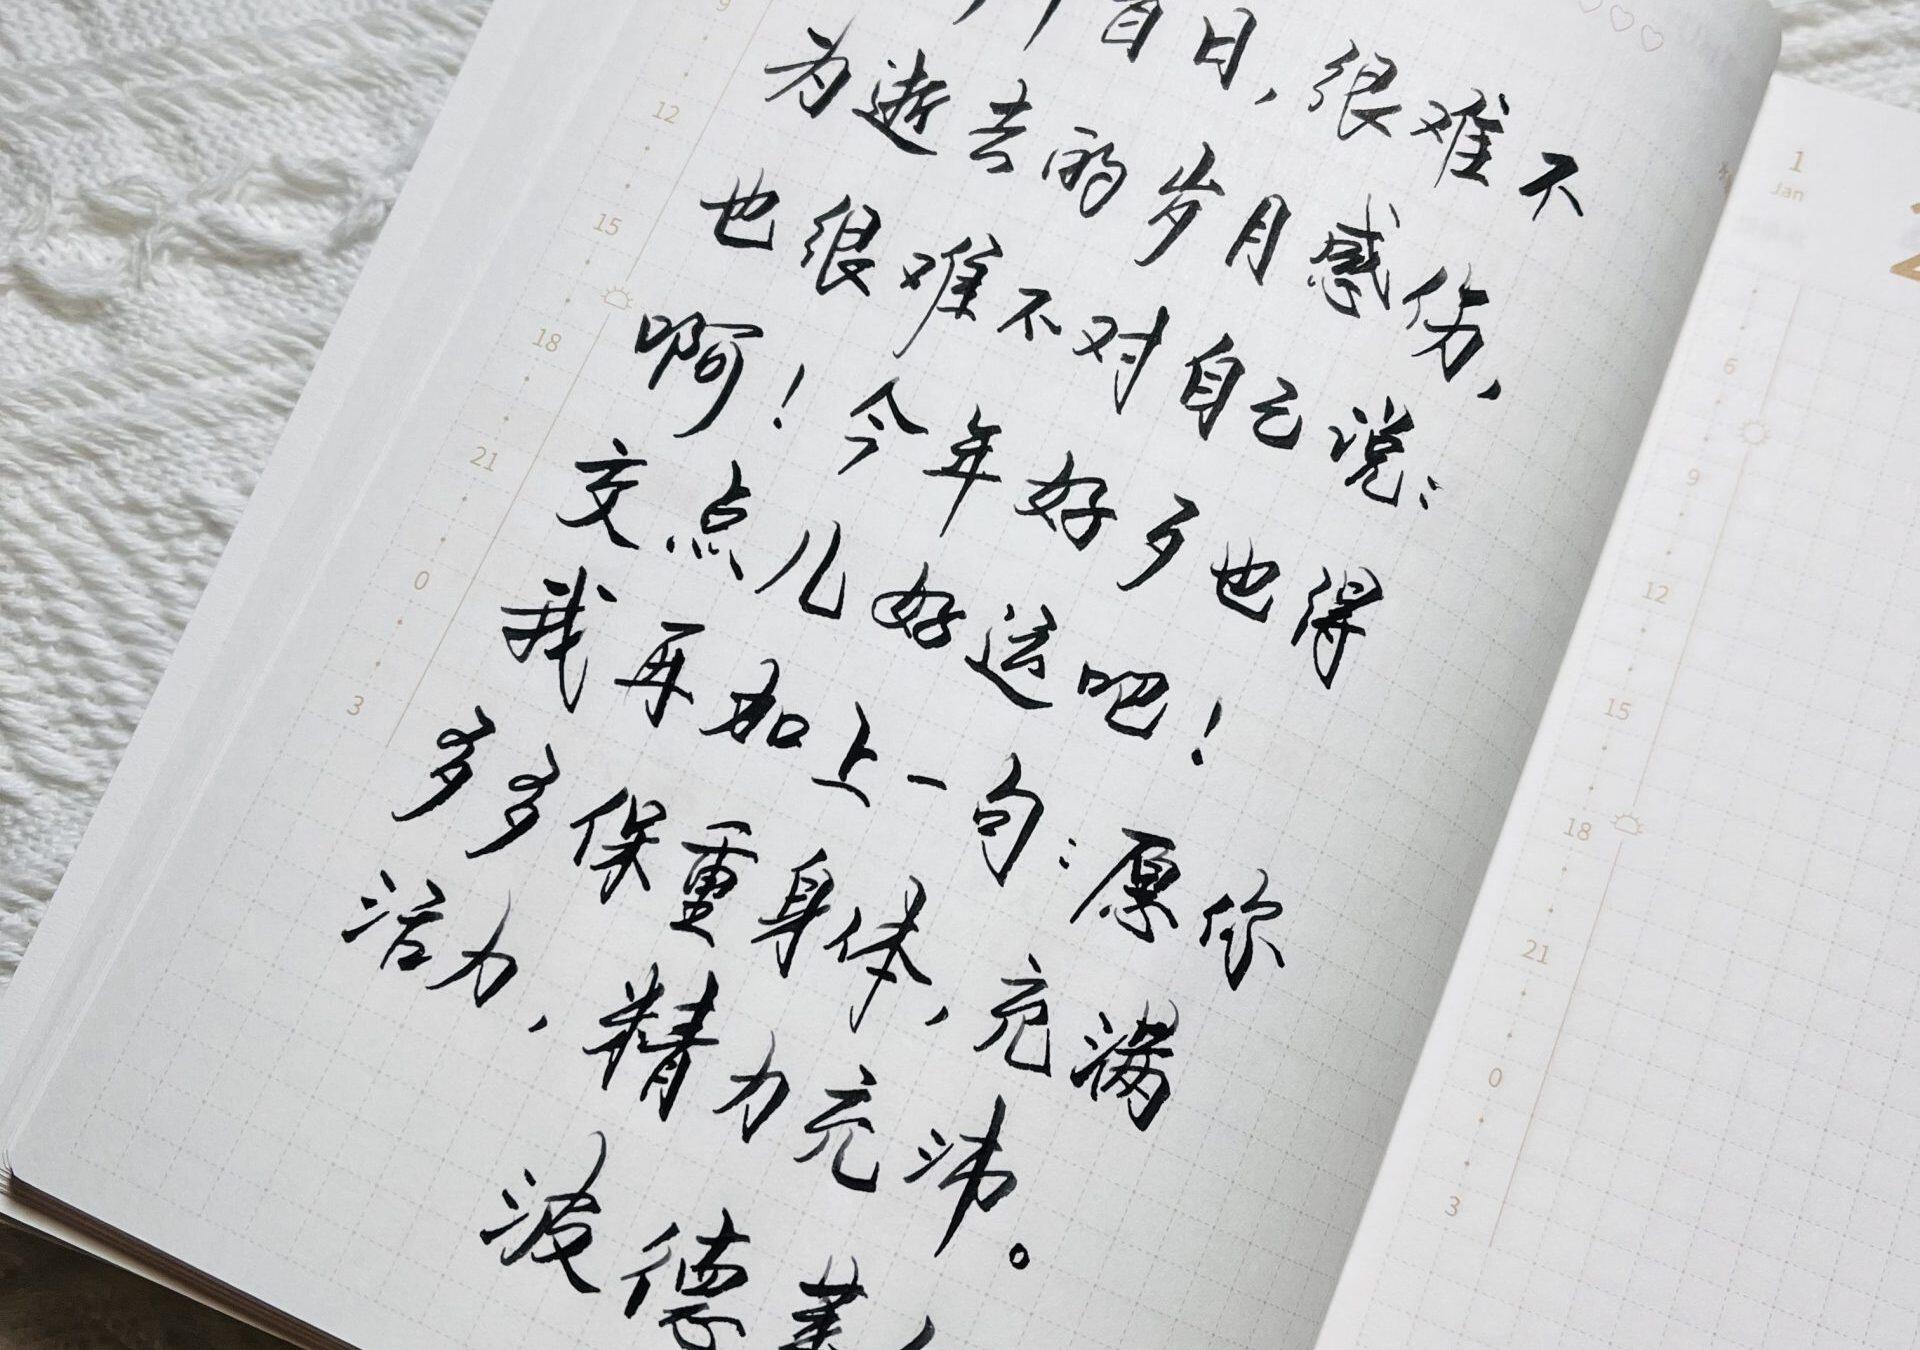 首日，很难不
为逝去的岁月感伤，
也很难不对自己说：
啊！今年好歹也得
交点儿好运吧！
我再加上一句：愿你
多多保重身体，充满
活力，精力充沛。
波德莱
9
12
15
18
21
0
3
1
Jan
6
9
12
15
18
21
0
3